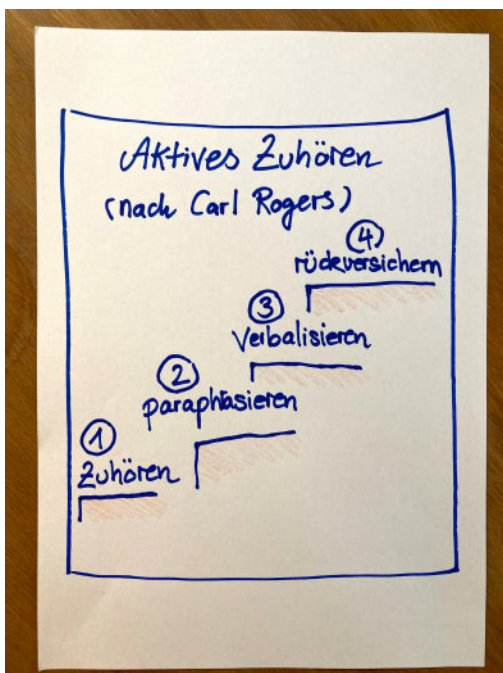 Aktives Zuhören
(nach Carl Rogers)
④
rückversichern
③
Verbalisieren
②
paraphrasieren
①
Zuhören